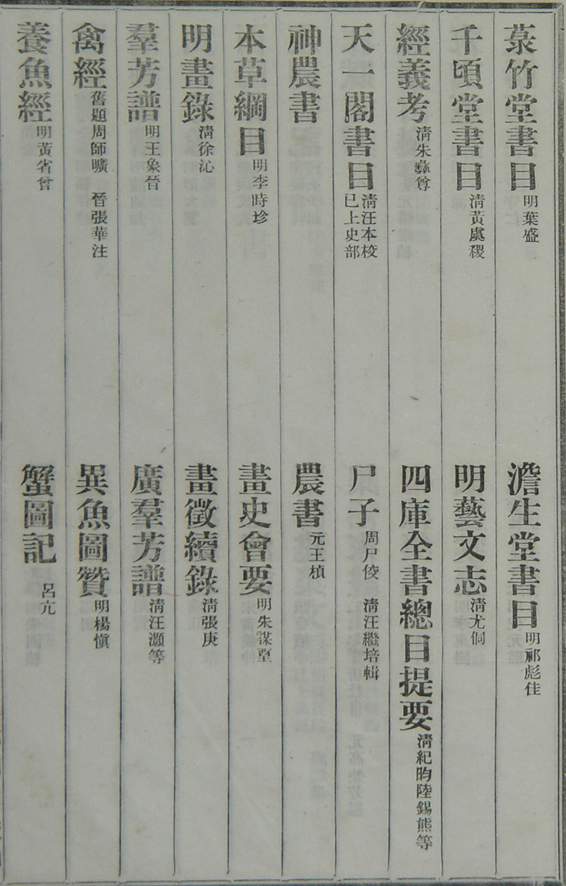 菉竹堂書目 明葉盛 澹生堂書目 明祁彪佳
千頃堂書目 清黃虞稷 明藝文志 清尤侗
經義考 清朱彝尊 四庫全書總目提要 清紀昀陸錫熊等
天一閣書目 清汪本校 已上史部 尸子 周尸佼 清汪繼培輯
神農書 農書 元王楨
本草綱目 明李時珍 畫史會要 明朱謀垔
明畫錄 清徐沁 畫徵續錄 清張庚
羣芳譜 明王象晉 廣羣芳譜 清汪灝等
禽經 舊題周師曠 晉張華注 異魚圖贊 明楊愼
養魚經 明黃省曾 蟹圖記 呂亢